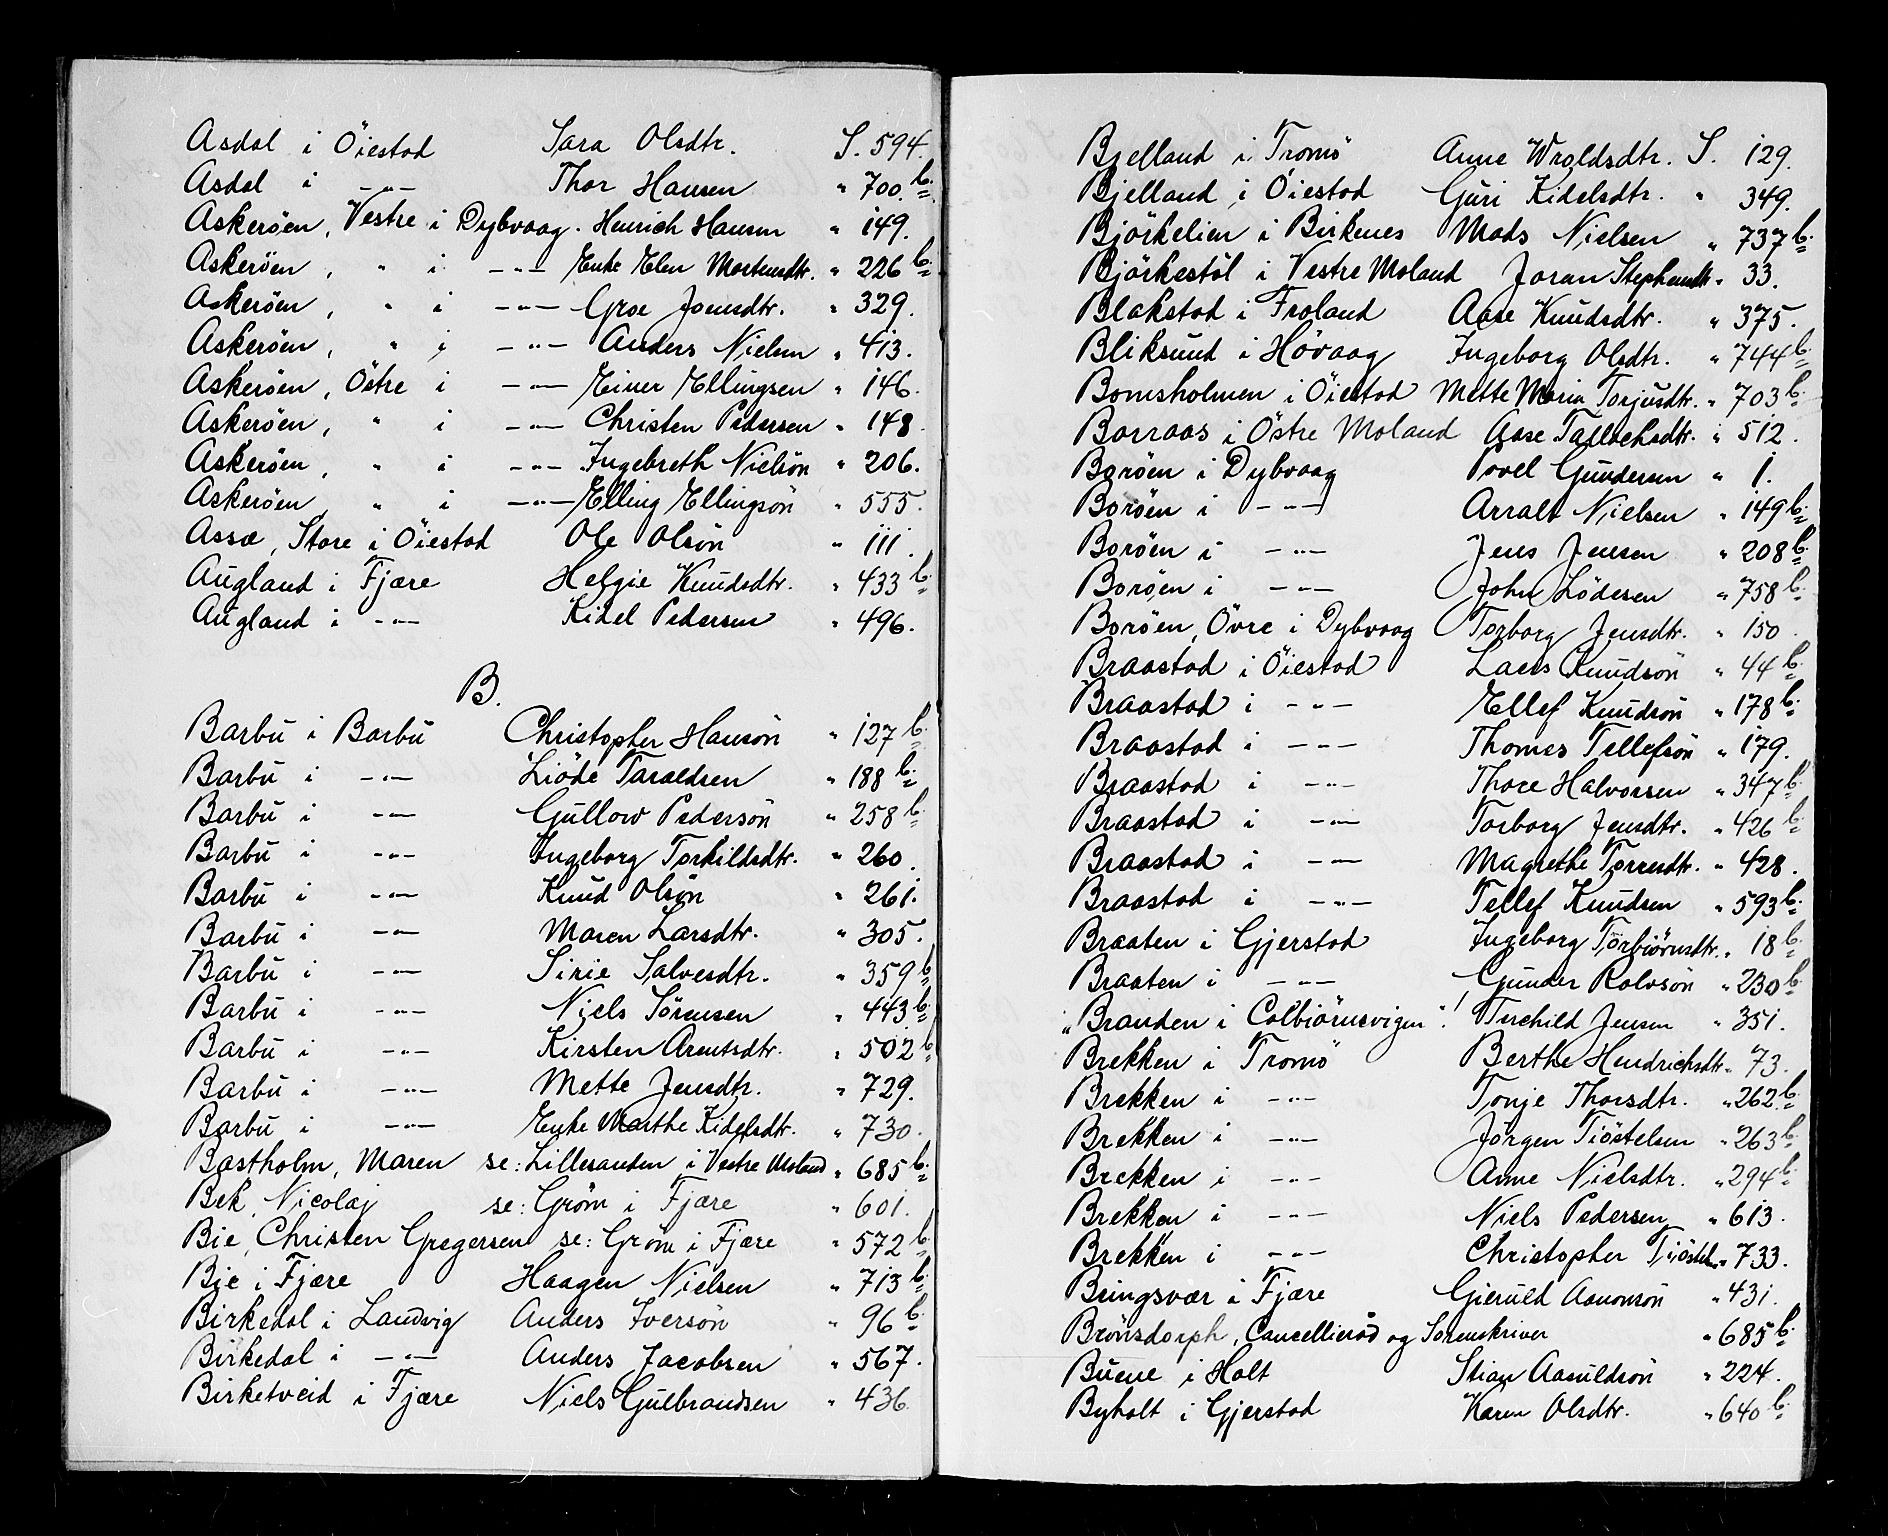 Asdal i Öiestad Sara Olsdtr. S. 594.
Asdal i -"- Thor Hansen " 700.b.
Askeröen, Vestre i Dybvaag. Henrich Hansen " 149.
Askeröen, " i -"- Enke Elen Mortensdtr. " 226 b.
Askeröen, " i -"- Groe Jonsdtr. " 329.
Askeröen, " i -"- Anders Nielsen " 413.
Askeröen, Östre i -"- Einer Ellingsen " 146.
Askeröen, " i -"- Christen Pedersen " 148.
Askeröen, " i -"- Ingebreth Nielsön " 206.
Askeröen " i -"- Elling Ellingsön " 555.
Assæ, Store i Öiestad Ole Olsön " 111.
Augland i Fjære Helgie Knudsdtr. " 433 b.
Augland i -"- Kidel Pedersen " 496.
B.
Barbu i Barbu Christopher Hansön " 127 b.
Barbu i -"- Liöde Taraldsen " 188 b.
Barbu i -"- Gullow Pedersön " 258 b.
Barbu i -"- Ingeborg Torkildsdtr. " 260.
Barbu i -"- Knud Olsön " 261.
Barbu i -"- Maren Larsdtr. " 305.
Barbu i -"- Sirie Salvesdtr. " 359 b.
Barbu i -"- Niels Sörensen " 443 b.
Barbu i -"- Kirsten Arentsdtr. " 502 b.
Barbu i -"- Mette Jensdtr. " 729.
Barbu i -"- Enke Marthe Kidelsdtr. " 730.
Bastholm, Maren se: Lillesanden i Vestre Moland " 685 b.
Bek, Nicolaj se: Gröm i Fjære " 601.
Bie, Christen Gregersen se: Gröm i Fjære " 572 b.
Bie i Fjære Haagen Nielsen " 713 b.
Birkedal i Landvig Anders Iversön " 96 b.
Birkedal i -"- Anders Jacobsen " 567.
Birketveid i Fjære Niels Gulbrandsen " 436.
Bjelland i Tromö Anne Wroldsdtr. S. 129.
Bjelland i Öiestad Guri Kidelsdtr. " 349.
Björkelien i Birkenes Mads Nielsen " 737 b.
Björkestöl i Vestre Moland Joran Stephensdtr " 33.
Blakstad i Froland Aase Knudsdtr. " 375.
Bliksund i Hövaag Ingeborg Olsdtr. " 744 b.
Bomsholmen i Öiestad Mette Maria Torjusdtr. " 703 b.
Borraas i Östre Moland Aase Tallachsdtr. " 512.
Boröen i Dybvaag Povel Gundersen " 1.
Boröen i -"- Arralt Nielsen " 149 b.
Boröen i -"- Jens Jensen " 208 b.
Boröen i -"- John Lödesen " 758 b.
Boröen, Övre i Dybvaag Torborg Jensdtr. " 150.
Braastad i Öiestad Laers Knudsön " 44 b.
Braastad i -"- Ellef Knudsön " 178 b.
Braastad i -"- Thomes Tellefsön " 179.
Braastad i -"- Thore Halvorsen " 347 b.
Braastad i -"- Torborg Jensdtr. " 426 b.
Braastad i -"- Magrethe Torresdtr. " 428.
Braastad i -"- Tellef Knudsen " 593 b.
Braaten i Gjerstad Ingeborg Torbiörnsdtr. " 18 b.
Braaten i -"- Gunder Rolvsön " 230 b.
"Branden i Colbiörnsvigen"! Terchild Jensen " 351.
Brekken i Tromö Berthe Hendrichsdtr " 73.
Brekken i -"- Tonje Thorsdtr. " 262 b.
Brekken i -"- Jörgen Tiöstelsen " 263 b.
Brekken i -"- Anne Nielsdtr. " 294 b.
Brekken i -"- Niels Pedersen " 613.
Brekken i -"- Christopher Tiöstels. " 733.
Bringsvær i Fjære Gieruld Aanonsön " 431.
Brönsdorph, Cancellieråd og Sorenskriver " 685 b.
Buene i Holt Stian Aasuldsön " 224.
Byholt i Gjerstad Karen Olsdtr. " 640 b.